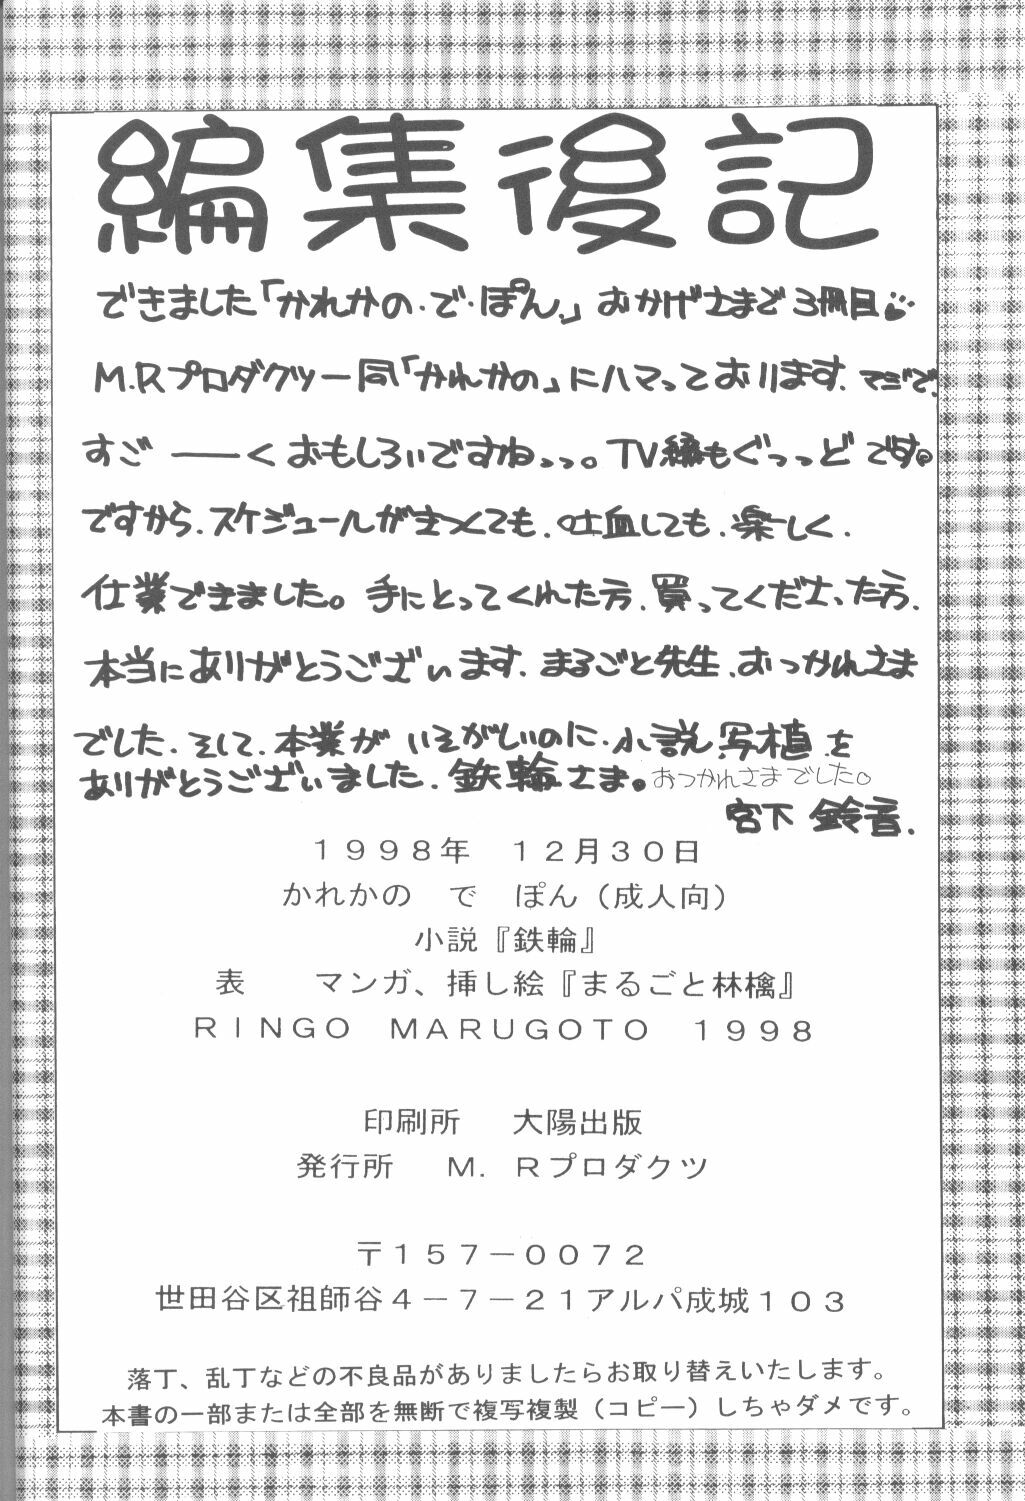 編集後記
できました「かれかの・で・ぽん。」おかげさまで3冊目
M.Rプロダクツ一同「かれかの」にハマっております、マジで、
すご――くおもしろいですねっっ。TV編もぐっっどです。
ですから、スケジュールがきつくても、吐血しても、楽しく、
仕業できました。手にとってくれた方、買ってくださった方、
本当にありがとうございます、まるごと先生、おつかれさま
でした、そして、本業がいそがしいのに、小説、写植を
ありがとうございました、鉄輪さま。おつかれさまでした。
宮下 鈴音、
1998年 12月30日
かれかの で ぽん（成人向）
小説『鉄輪』
表 マンガ、挿し絵『まるごと林檎』
RINGO MARUGOTO 1998
印刷所 大陽出版
発行所 M．Rプロダクツ
〒157－0072
世田谷区祖師谷4－7－21アルパ成城103
落丁、乱丁などの不良品がありましたらお取り替えいたします。
本書の一部または全部を無断で複写複製（コピー）しちゃダメです。